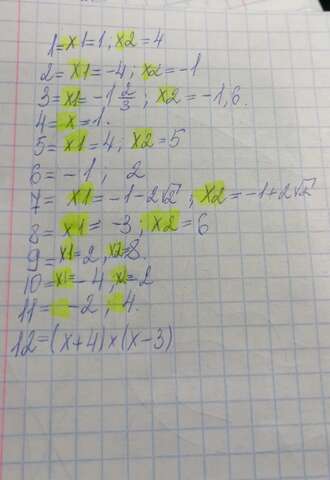 1= x1=1, x2=4
2= x1=-4; x2=-1
3= x1= -1 2/3; x2=-1,6.
4= x=1.
5= x1=4; x2=5
6= -1, 2
7= x1=-1-2√2; x2=-1+2√2
8= x1= -3; x2=6
9= x1=2, x2=8.
10= x1=-4, x2=2
11= -2; 4.
12=(x+4)x(x-3)